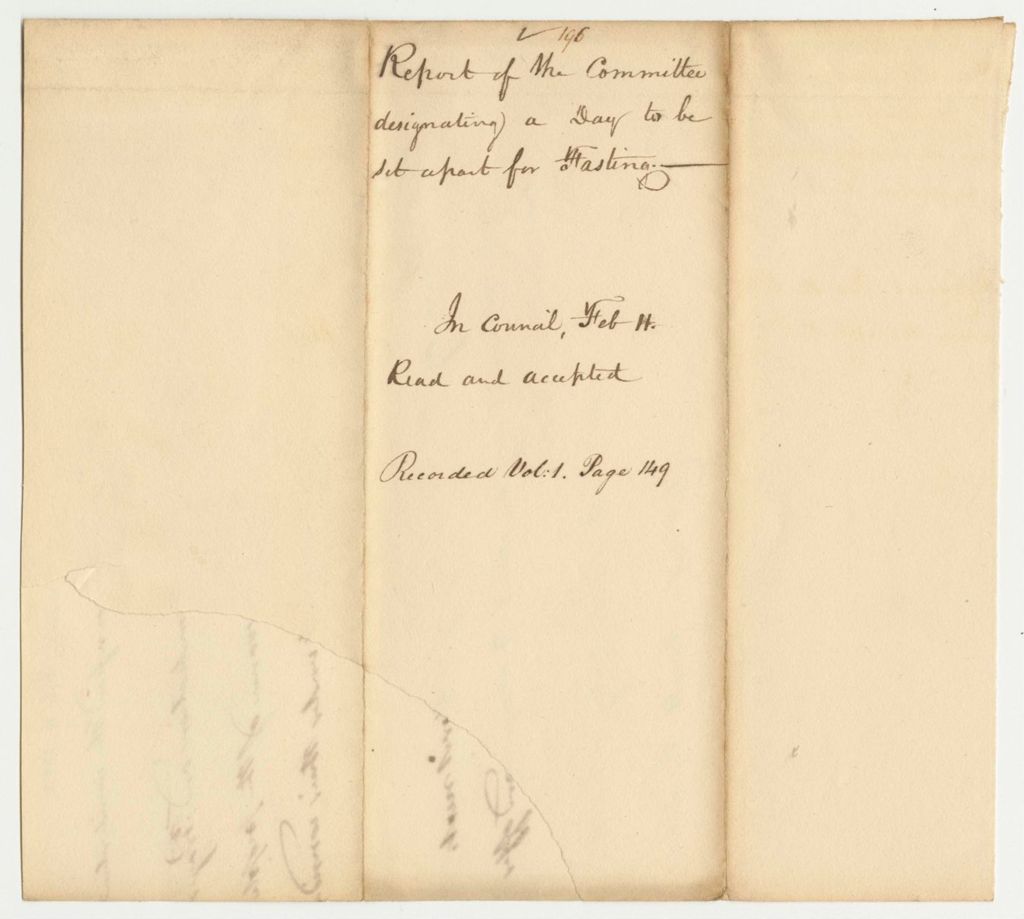 ✓ 196
Report of the Committee
designating a Day to be
set apart for Fasting.
In Council, Feb 11.
Read and accepted
Recorded Vol: 1. Page 149